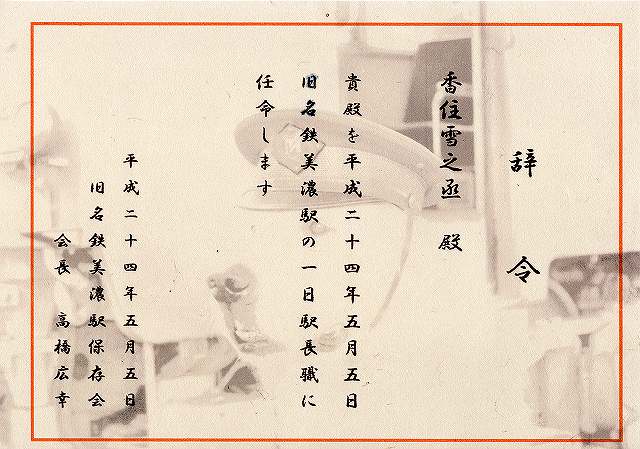 辞令
香住雪之丞 殿
貴殿を平成二十四年五月五日
旧名鉄美濃駅の一日駅長職に
任命します
平成二十四年五月五日
旧名鉄美濃駅保存会
会長 高橋広幸